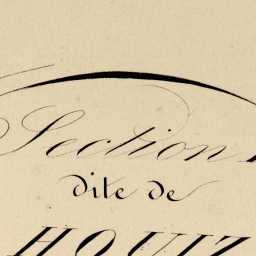 Section
dite de
HOUIZ